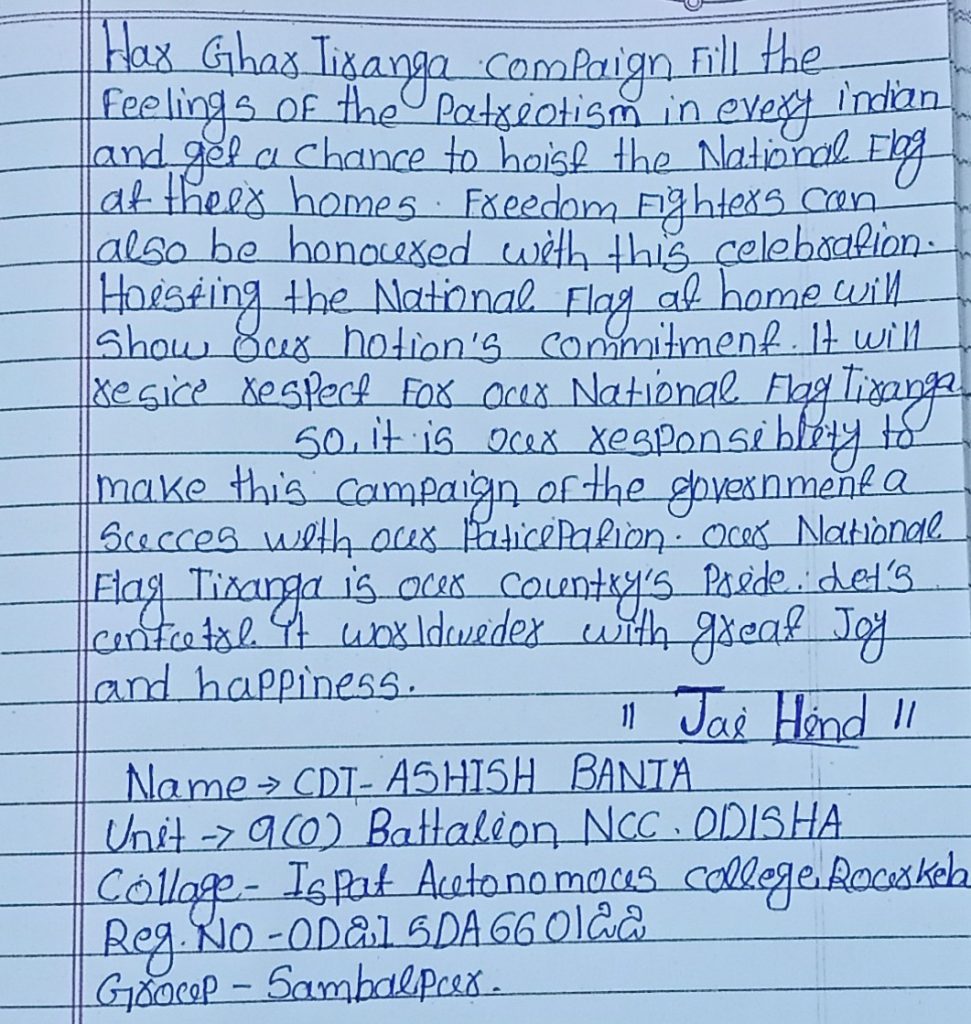 Har Ghar Tiranga campaign Fill the
Feelings of the Patreotism in every indian
and get a chance to hoist the National Flag
at their homes. Freedom Fighters can
also be honoured with this celebration.
Hoisting the National Flag at home will
show our nation's commitment. It will
respect For our National Flag Tiranga
so, it is our responsiblity to
make this campaign of the government a
Succes with our Paticipation. our National
Flag Tiranga is our country's Pride. Let's
it worldwider with great Joy
and happiness.
" Jai Hind "
Name → CDT- ASHISH BANIA
Unit → 9(O) Battalion NCC. ODISHA
Collage - Ispat Autonomous college, Rourkela
Reg. NO - OD21SDA660122
Group - Sambalpur.